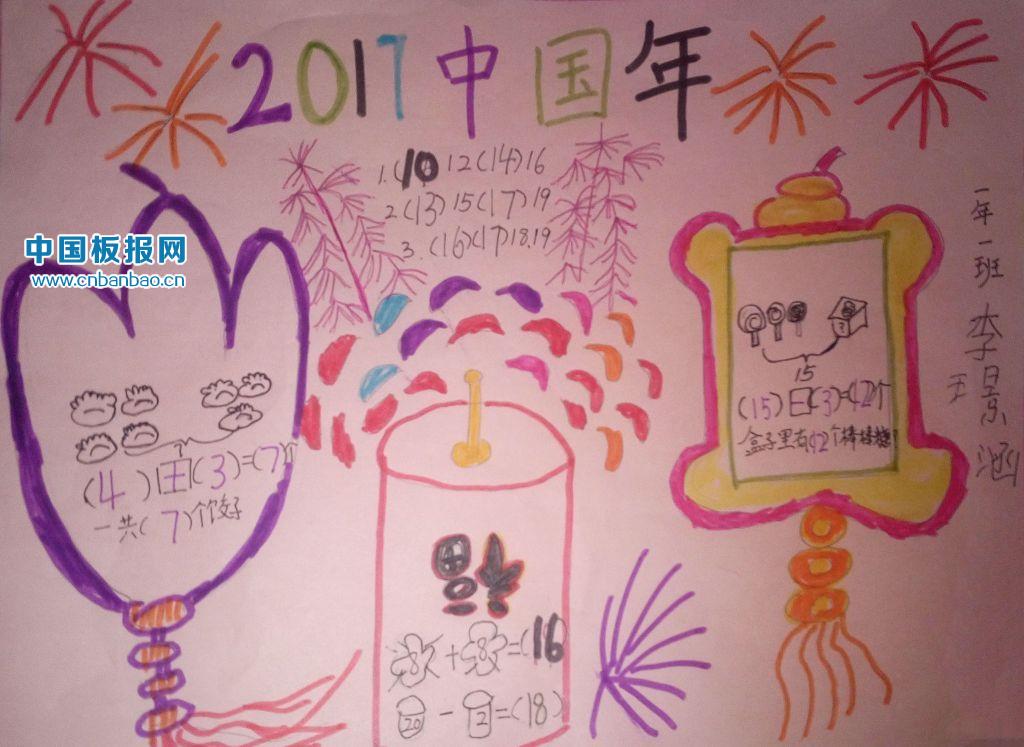 2017中国年
1.(10)12(14)16
2.(13)15(17)19
3.(16)(17)18.19
中国板报网
www.cnbanbao.cn
一年一班 李景涵
?
(4)+(3)=(7)个
一共(7)个饺子
?
15
(15)-(3)=12个
盒子里有12个棒棒糖
福
8+8=(16
20-2=(18)